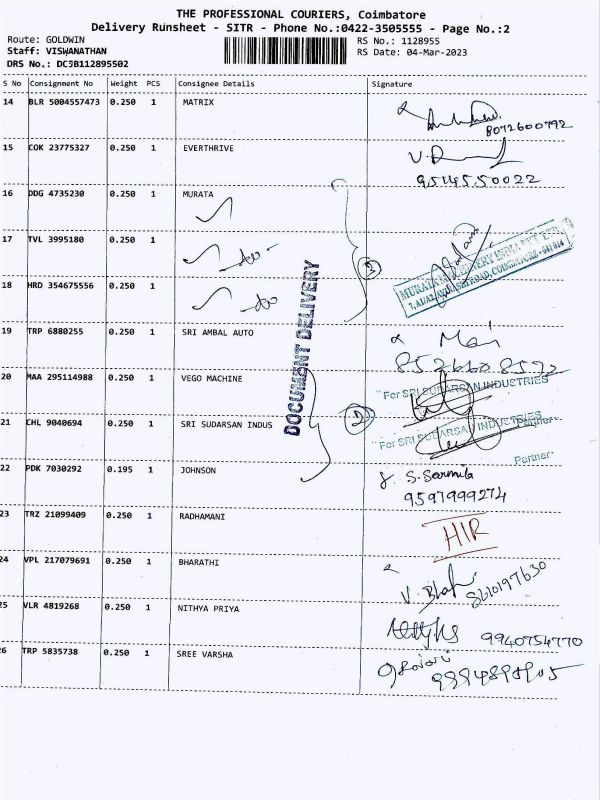 THE PROFESSIONAL COURIERS, Coimbatore
Delivery Runsheet - SITR - Phone No.:0422-3505555 - Page No.:2
Route: GOLDWIN
Staff: VISWANATHAN
DRS No.: DC3B112895502
RS No.: 1128955
RS Date: 04-Mar-2023
S No Consignment No Weight PCS Consignee Details Signature
14 BLR 5004557473 0.250 1 MATRIX
8072600792
15 COK 23775327 0.250 1 EVERTHRIVE
9514550022
16 DDG 4735230 0.250 1 MURATA
17 TVL 3995180 0.250 1
18 HRD 354675556 0.250 1
DOCUMENT DELIVERY
19 TRP 6880255 0.250 1 SRI AMBAL AUTO
Mai
20 MAA 295114988 0.250 1 VEGO MACHINE
For SRI SUDARSAN INDUSTRIES
Partner
21 CHL 9040694 0.250 1 SRI SUDARSAN INDUS
For SRI SUDARSAN INDUSTRIES
Partner
22 PDK 7030292 0.195 1 JOHNSON
S. Sarmila
9597999274
23 TRZ 21099409 0.250 1 RADHAMANI
HIR
24 VPL 217079691 0.250 1 BHARATHI
8610197630
25 VLR 4819268 0.250 1 NITHYA PRIYA
9940754770
26 TRP 5835738 0.250 1 SREE VARSHA